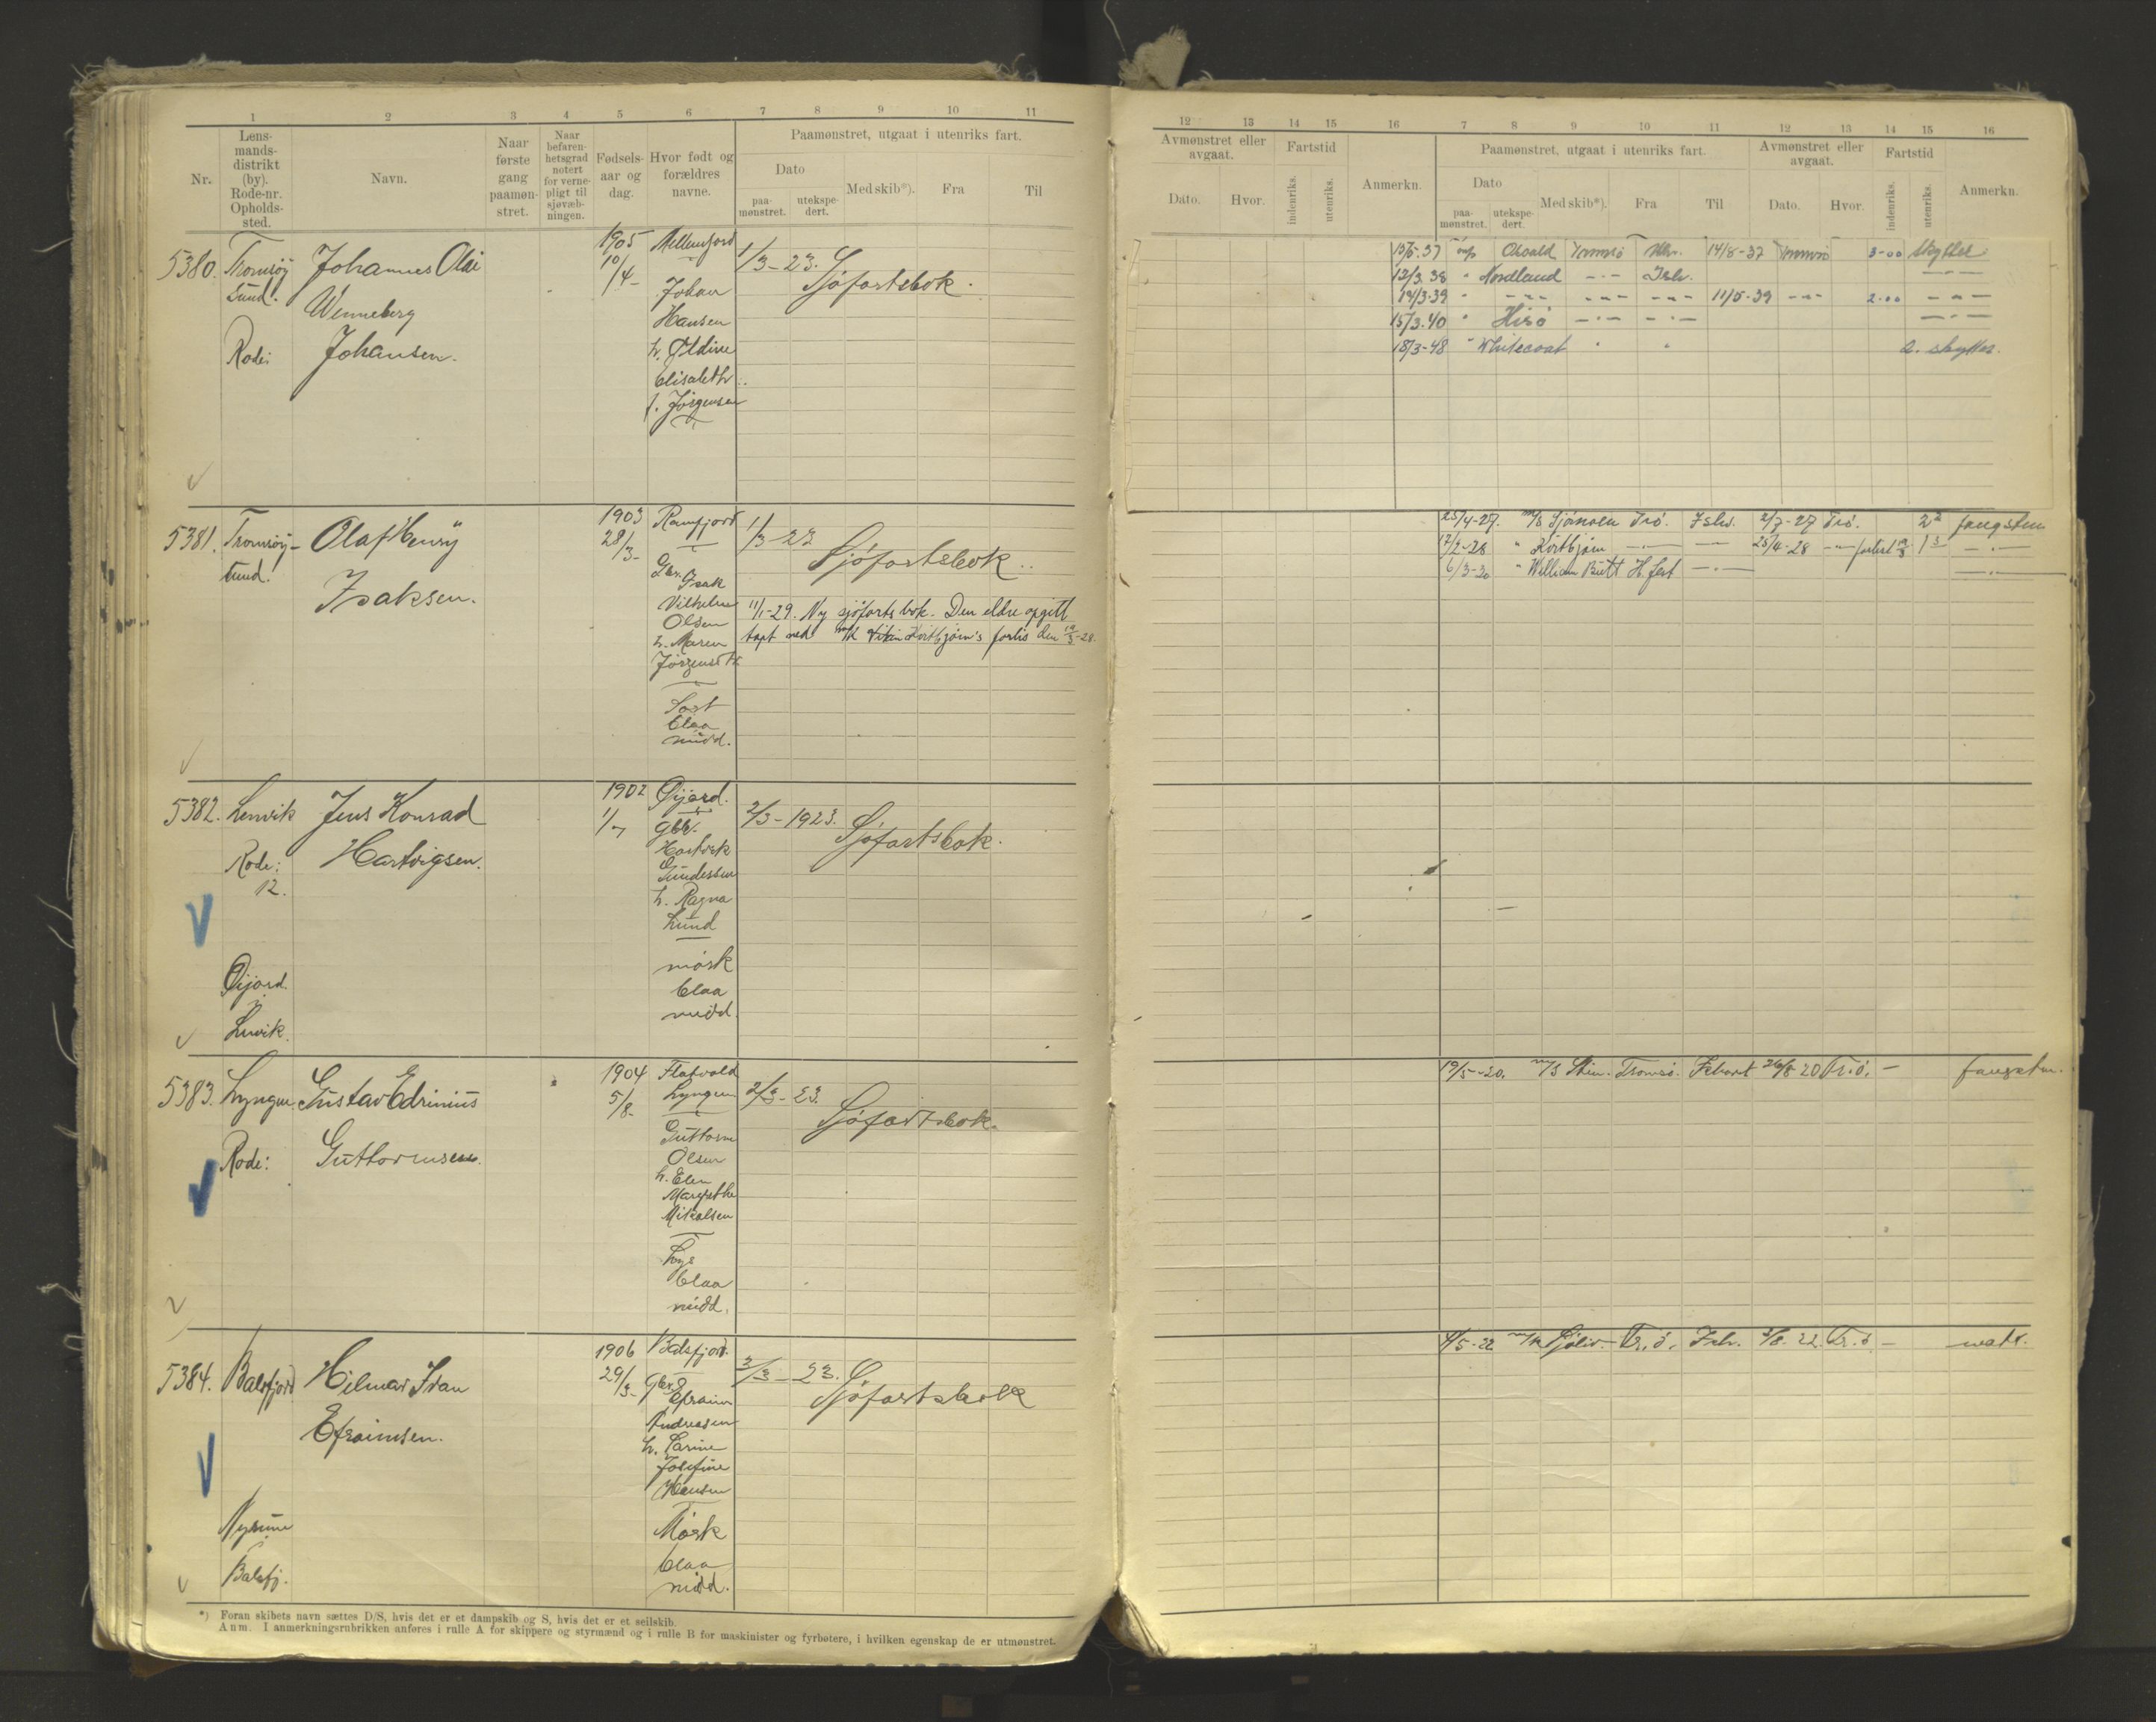 1 2 3 4 5 6 7 8 9 10 11
Nr.
Lens-
mands-
distrikt
(by).
Rode-nr.
Opholds-
sted.
Navn.
Naar
første
gang
paamøn-
stret.
Naar
befaren-
hetsgrad
notert
for verne-
pligt til
sjøvæb-
ningen.
Fødsels-
aar og
dag.
Hvor født og
forældres
navne.
Paamønstret, utgaat i utenriks fart.
Dato
paa-
mønstret.
utekspe-
dert.
Med skib*).
Fra
Til
5380.
Tromsöy
sund.
Rode:
Johannes Olai
Wenneberg
Johansen.
1905
10/4-
Mellemjord
Johan
Hansen
h. Oldine
Elisabeth
f. Jörgensen
1/3-23.
Sjöfartsbok.
5381.
Tromsöy-
sund.
Olaf Henry
Isaksen.
1903
28/3-
Ramfjord
Gbr. Isak
Vilhelm
Olsen
h. Maren
Jörgensdtr.
Sort
blaa
midd.
1/3-23
Sjöfartsbok.
11/1-29. Ny sjöfartsbok. Den eldre opgitt
tapt med m/k Kvitbjörn's forlis den 19/3-28.
5382.
Lenvik
Rode:
12.
Gijord.
Lenvik.
Jens Konrad
Hartvigsen.
1902
1/7
Gijord.
gbr.
Hartvik
Gundersen
h. Ragna
Lund
mörk
blaa
midd.
2/3-1923.
Sjöfartsbok.
5383.
Lyngen
Rode:
Gustav Edrinius
Guttormsen.
1904
5/8-
Flatvold
Lyngen
Guttorm
Olsen
h. Elen
Margrethe
Mikalsen
Lys
blaa
midd.
2/3-23.
Sjöfartsbok.
5384.
Balsfjord
Nymine
Balsfj.
Hilmar Ivan
Efraimsen.
1906
29/3-
Balsfjord.
Gbr.
Efraim
Andreasen
h. Carine
Josefine
Hansen
Mörk
blaa
midd.
3/3-23.
Sjöfartsbok
*) Foran skibets navn sættes D/S, hvis det er et dampskib og S, hvis det er et seilskib.
Anm. I anmerkningsrubrikken anføres i rulle A for skippere og styrmænd og i rulle B for maskinister og fyrbøtere, i hvilken egenskap de er utmønstret.
12 13 14 15 16 7 8 9 10 11 12 13 14 15 16
Avmønstret eller
avgaat.
Dato.
Hvor.
Fartstid
indenriks.
utenriks.
Anmerkn.
Paamønstret, utgaat i utenriks fart.
Dato
paa-
mønstret.
utekspe-
dert.
Med skib*).
Fra
Til
Avmønstret eller
avgaat.
Dato.
Hvor.
Fartstid
indenriks.
utenriks.
Anmerkn.
15/5.37 Osvald Tromsö Ishv. 14/8-37 Tromsö 3-00 skytter
12/3.38 " Nordland -"- Ishv. -"-
14/3.39 " -"- -"- -"- 11/5-39 -"- 2.00 -"-
15/3.40 " Hisö -"- -"- -"-
18/3-48 " Whitecoat " " a. skytter.
25/4-27. m/k Trö. Ishv. 2/7-27 Trö. fangstm
17/2-28 " Kvitbjörn -"- -"- 25/4-28 -"- forlist 19/3 -"-
6/3-30 " William Butt H.fest -"- -"-
19/5-20. m/s Tromsö. Ishavet 26/8 20 Tr.ö. - fangstm.
4/5-22 m/k Sjöliv. Tr.ö. Ish. /8.22. Tr.ö - matr.